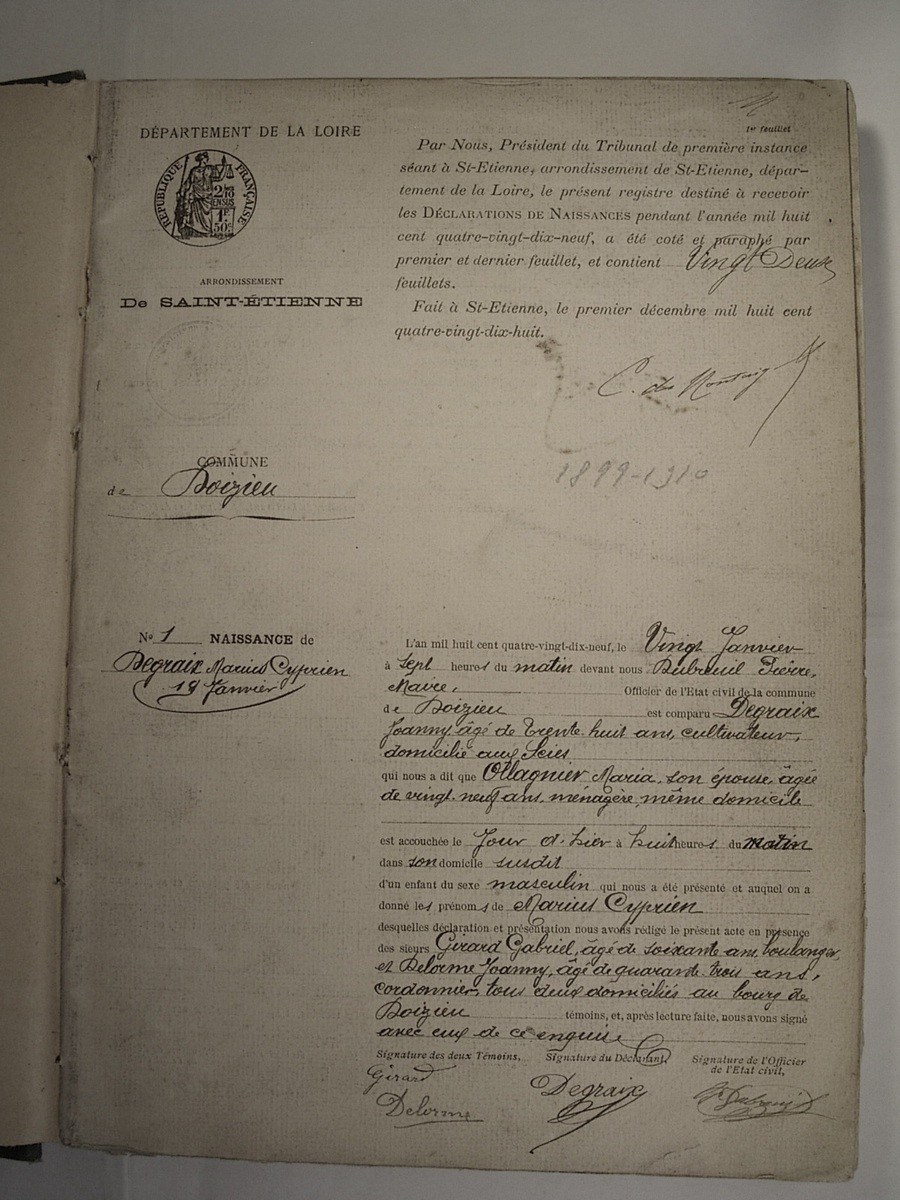 DÉPARTEMENT DE LA LOIRE
RÉPUBLIQUE FRANÇAISE
2/10 EN SUS
1F.
50c
ARRONDISSEMENT
De SAINT-ÉTIENNE
COMMUNE
de Doizieu
1er feuillet
Par Nous, Président du Tribunal de première instance
séant à St-Etienne, arrondissement de St-Etienne, dépar-
tement de la Loire, le présent registre destiné à recevoir
les DÉCLARATIONS DE NAISSANCES pendant l'année mil huit
cent quatre-vingt-dix-neuf, a été coté et paraphé par
premier et dernier feuillet, et contient Vingt Deux
feuillets.
Fait à St-Etienne, le premier décembre mil huit cent
quatre-vingt-dix-huit.
1899-1910
No 1 NAISSANCE de
Degraix Marius Cyprien
19 Janvier
L'an mil huit cent quatre-vingt-dix-neuf, le Vingt Janvier
à sept heures du matin devant nous Dubreuil Pierre,
Maire, Officier de l'Etat civil de la commune
de Doizieu est comparu Degraix
Joanny, âgé de trente huit ans, cultivateur,
domicilié aux Scies
qui nous a dit que Ollagnier Maria, son épouse, âgée
de vingt neuf ans, ménagère, même domicile
est accouchée le Jour d'hier à huit heures du matin
dans son domicile susdit
d'un enfant du sexe masculin qui nous a été présenté et auquel on a
donné les prénoms de Marius Cyprien
desquelles déclaration et présentation nous avons rédigé le présent acte en présence
des sieurs Girard Gabriel, âgé de soixante ans, boulanger,
et Delorme Joanny, âgé de quarante trois ans,
cordonnier, tous deux domiciliés au bourg de
Doizieu témoins, et, après lecture faite, nous avons signé
avec eux de ce enquis
Signature des deux Témoins, Signature du Déclarant, Signature de l'Officier
de l'Etat civil,
Girard
Delorme
Degraix